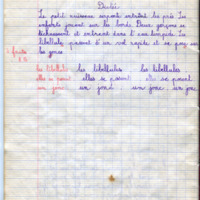 Dictée
Le petit ruisseau serpente entre les prés. Les
enfants jouent sur les bords. Deux garçons se
déchaussent et entrent dans l'eau limpide. Les
libellules passent d'un vol rapide et se posent sur
les joncs
les libellules les libellules les libellules
elles se posent elles se posent elle se posent
un jonc un jonc un jonc un jonc